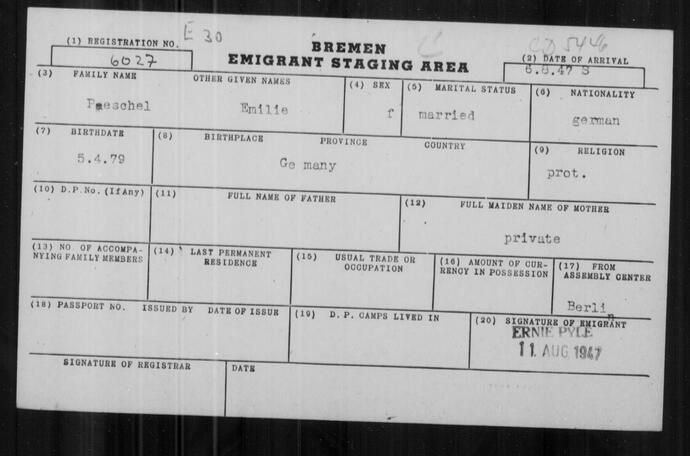 E 30
CD 5446
(1) REGISTRATION NO.
6027
BREMEN
EMIGRANT STAGING AREA
(2) DATE OF ARRIVAL
6.8.47 S
(3) FAMILY NAME OTHER GIVEN NAMES
Paeschel Emilie
(4) SEX
f
(5) MARITAL STATUS
married
(6) NATIONALITY
german
(7) BIRTHDATE
5.4.79
(8) BIRTHPLACE PROVINCE COUNTRY
Ge many
(9) RELIGION
prot.
(10) D.P.No. (If Any)
(11) FULL NAME OF FATHER
(12) FULL MAIDEN NAME OF MOTHER
private
(13) NO. OF ACCOMPA-
NYING FAMILY MEMBERS
(14) LAST PERMANENT
RESIDENCE
(15) USUAL TRADE OR
OCCUPATION
(16) AMOUNT OF CUR-
RENCY IN POSSESSION
(17) FROM
ASSEMBLY CENTER
Berlin
(18) PASSPORT NO. ISSUED BY DATE OF ISSUE
(19) D.P. CAMPS LIVED IN
(20) SIGNATURE OF EMIGRANT
ERNIE PYLE
11 AUG 1947
SIGNATURE OF REGISTRAR
DATE